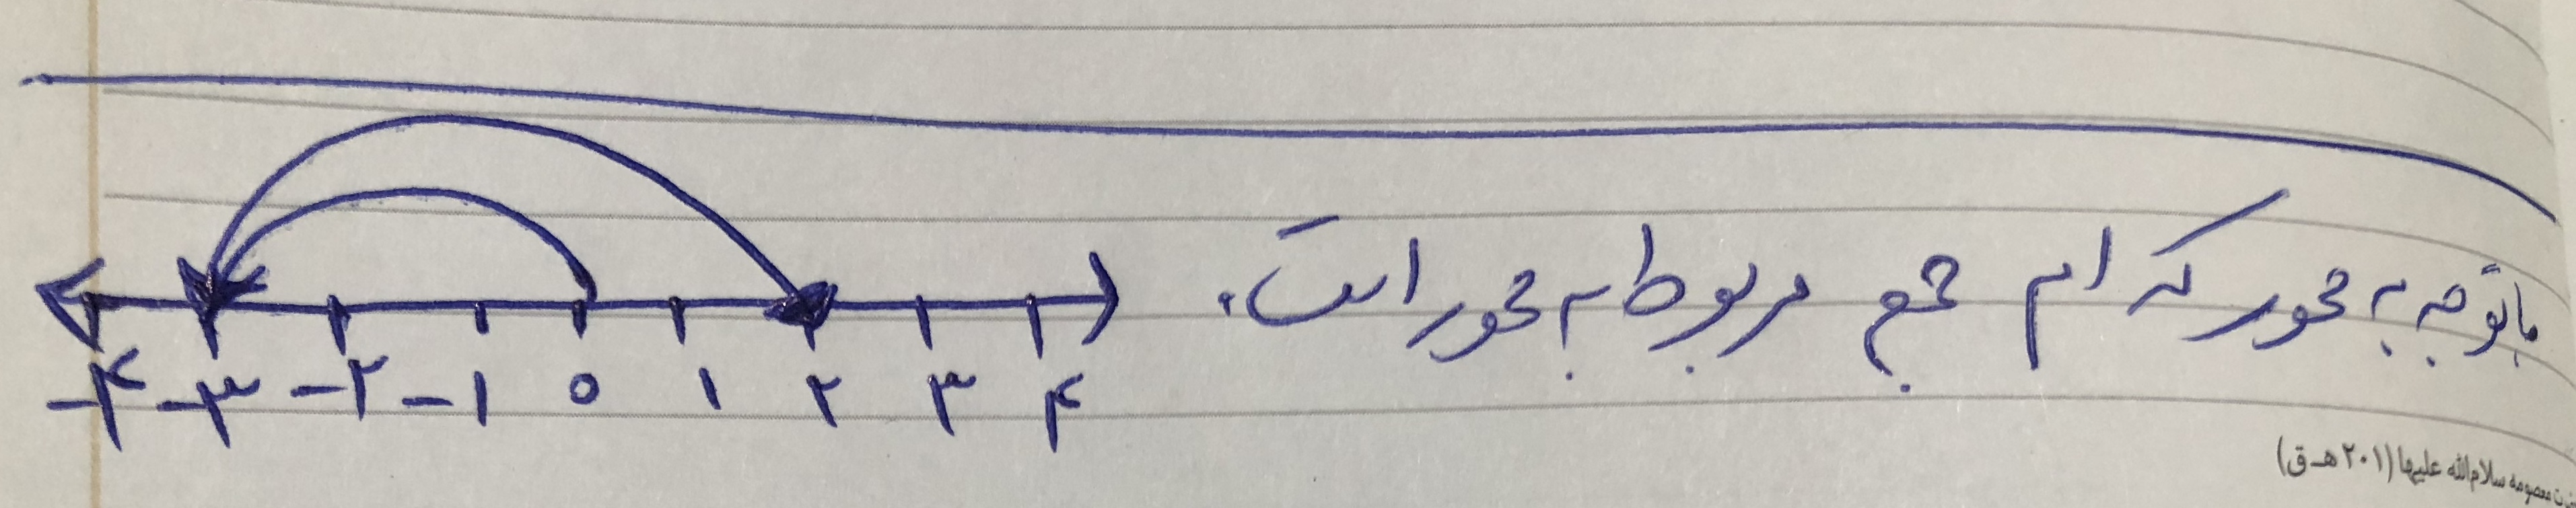 با توجه به محور کدام جمع مربوط به محور است.
-۴ -۳ -۲ -۱ ۰ ۱ ۲ ۳ ۴
معصومه سلام‌الله علیها (۲۰۱ هـ ق)